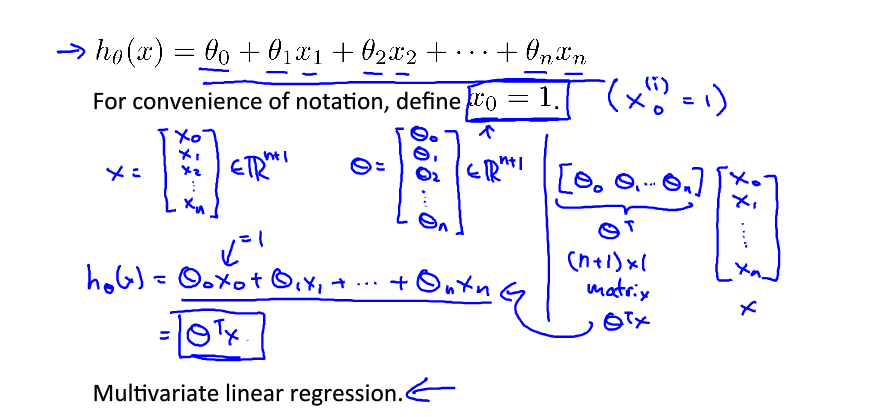 → hθ(x) = θ₀ + θ₁x₁ + θ₂x₂ + ⋯ + θₙxₙ
For convenience of notation, define x₀ = 1. (x₀⁽ⁱ⁾ = 1)
x = [x₀ x₁ x₂ ⋮ xₙ] ∈ ℝⁿ⁺¹ θ = [θ₀ θ₁ θ₂ ⋮ θₙ] ∈ ℝⁿ⁺¹
[θ₀ θ₁ ⋯ θₙ] [x₀ x₁ ⋮ xₙ]
θᵀ
(n+1)×1
matrix
x
θᵀx
=1
hθ(x) = θ₀x₀ + θ₁x₁ + ⋯ + θₙxₙ
= θᵀx
Multivariate linear regression. ←